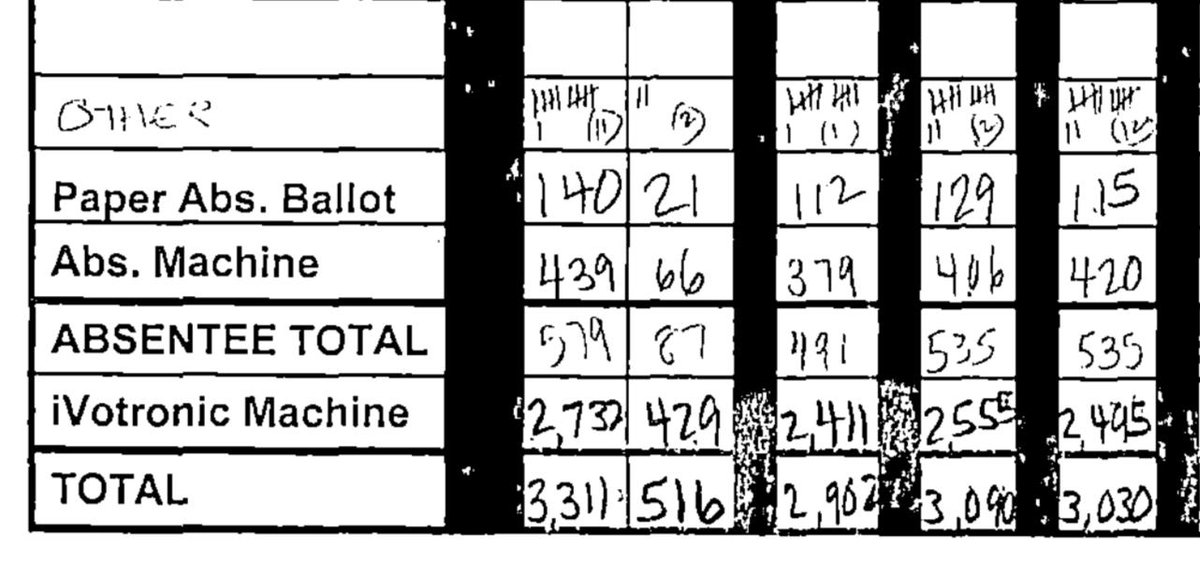 OTHER (11) (2) (1) (2) (12)
Paper Abs. Ballot 140 21 112 129 115
Abs. Machine 439 66 379 406 420
ABSENTEE TOTAL 579 87 491 535 535
iVotronic Machine 2,732 429 2,411 2,555 2,495
TOTAL 3,311 516 2,902 3,090 3,030